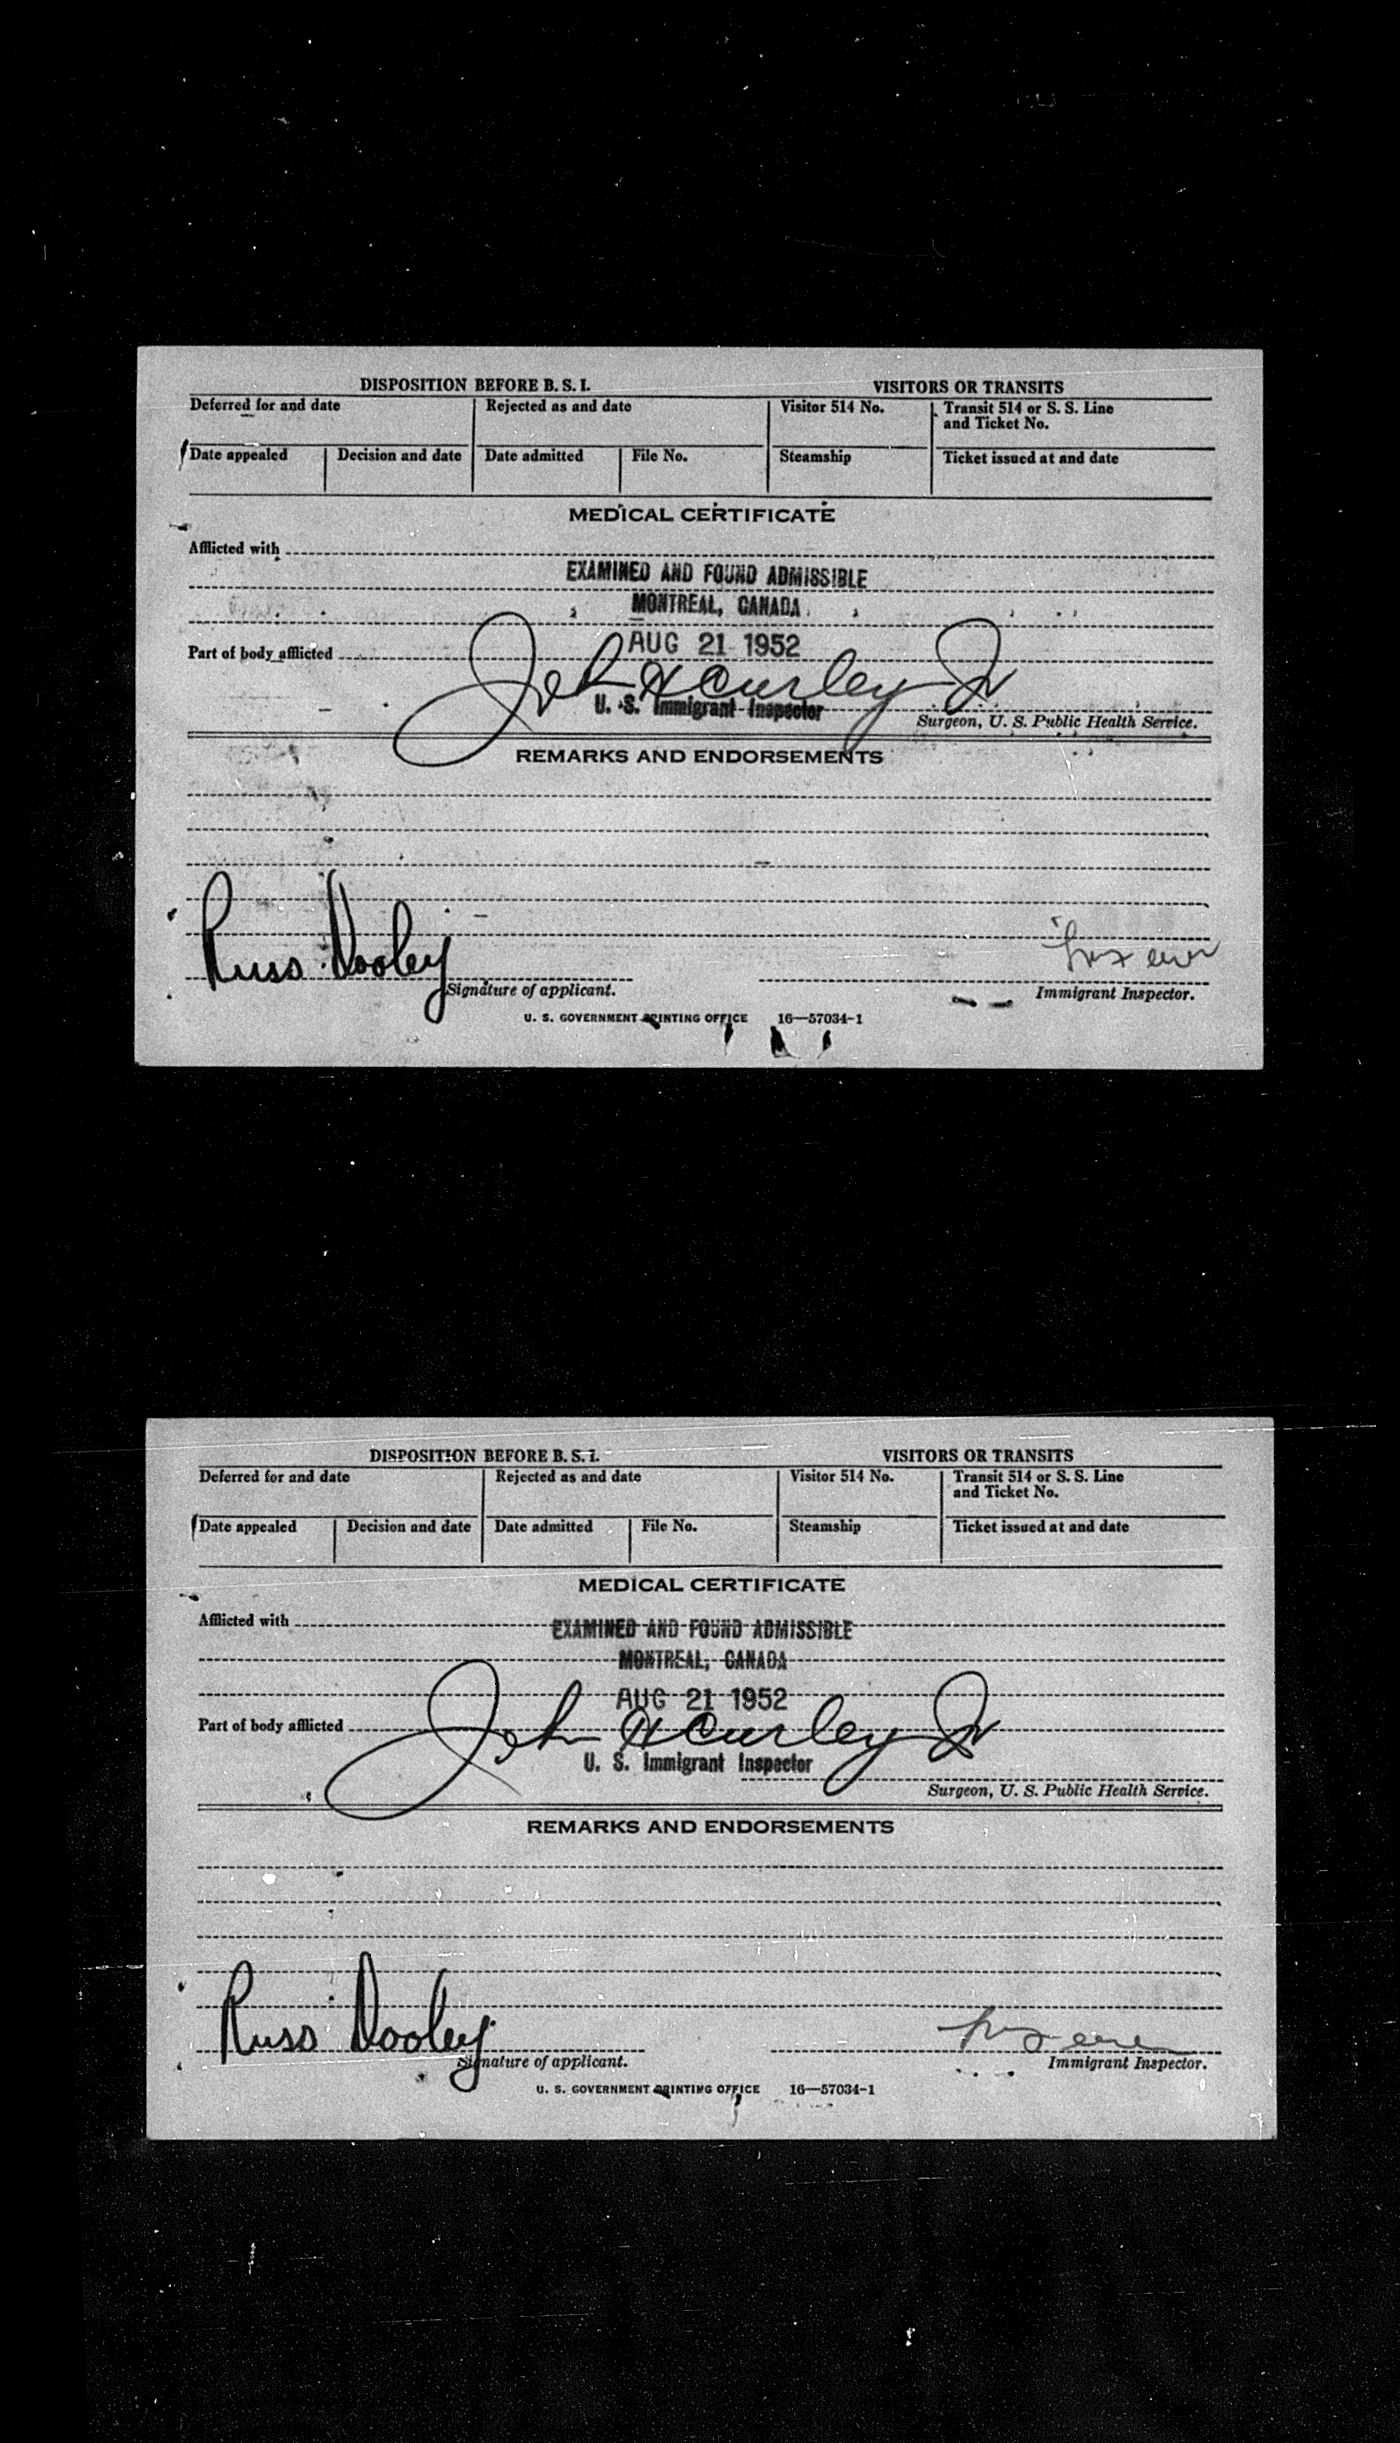 DISPOSITION BEFORE B. S. I. VISITORS OR TRANSITS
Deferred for and date Rejected as and date Visitor 514 No. Transit 514 or S. S. Line
and Ticket No.
Date appealed Decision and date Date admitted File No. Steamship Ticket issued at and date
MEDICAL CERTIFICATE
Afflicted with
EXAMINED AND FOUND ADMISSIBLE
MONTREAL, CANADA
AUG 21 1952
Part of body afflicted
John H Curley Jr
U. S. Immigrant Inspector
Surgeon, U. S. Public Health Service.
REMARKS AND ENDORSEMENTS
Russ Dooley
Signature of applicant. Immigrant Inspector.
U. S. GOVERNMENT PRINTING OFFICE 16—57034-1
DISPOSITION BEFORE B. S. I. VISITORS OR TRANSITS
Deferred for and date Rejected as and date Visitor 514 No. Transit 514 or S. S. Line
and Ticket No.
Date appealed Decision and date Date admitted File No. Steamship Ticket issued at and date
MEDICAL CERTIFICATE
Afflicted with
EXAMINED AND FOUND ADMISSIBLE
MONTREAL, CANADA
AUG 21 1952
Part of body afflicted
John H Curley Jr
U. S. Immigrant Inspector
Surgeon, U. S. Public Health Service.
REMARKS AND ENDORSEMENTS
Russ Dooley
Signature of applicant. Immigrant Inspector.
U. S. GOVERNMENT PRINTING OFFICE 16—57034-1